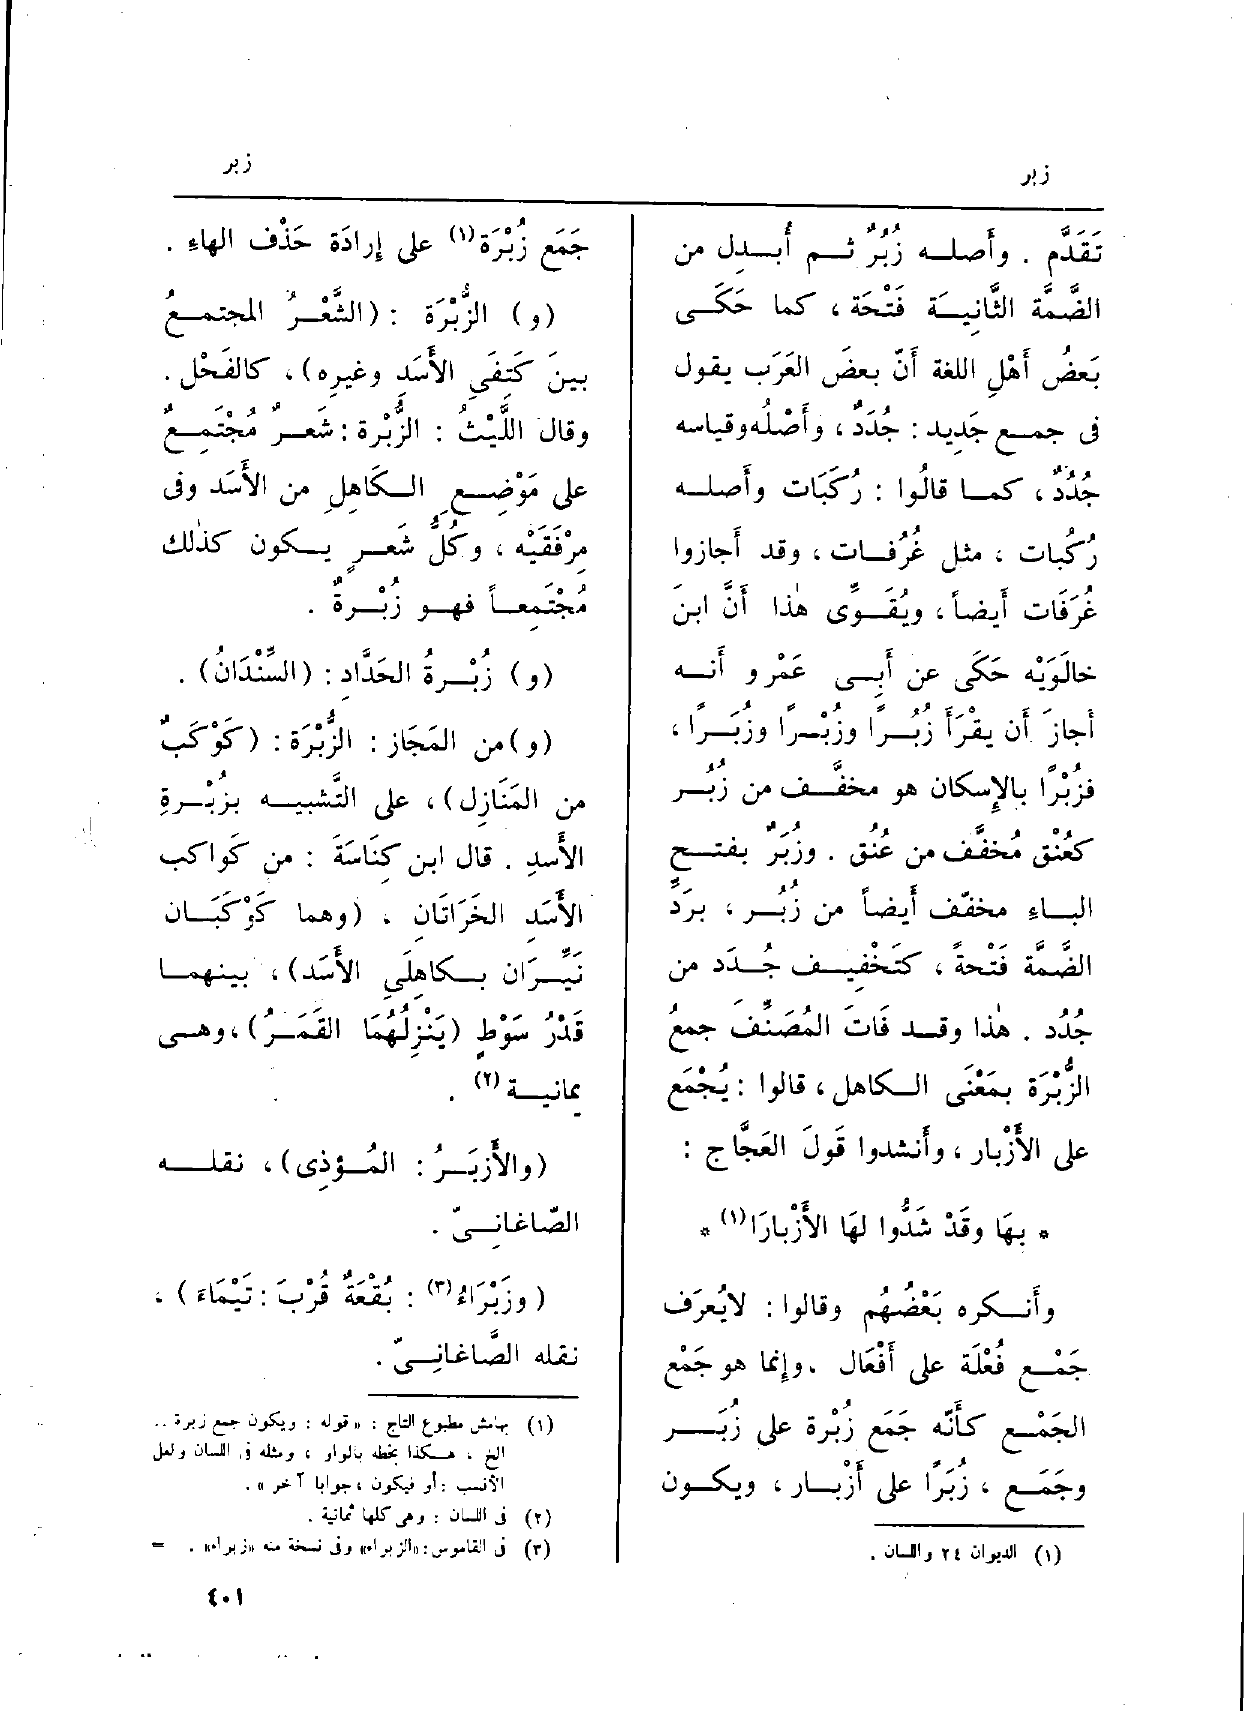 زبر
زبر
تَقَدَّم . وأَصلــه زُبُرٌ ثــم أُبــدِل من
الضَّمَّة الثَّانيــة فَتْحَة ، كما حَكَــى
بَعضُ أَهْلِ اللغة أَنّ بعضَ العَرَب يقول
فى جمــع جَدِيد : جُدَدٌ ، وأَصْلُه وقياسه
جُدُدٌ ، كمــا قالُوا : رُكَبَات وأَصلــه
رُكُبات ، مثل غُرُفــات ، وقد أَجازوا
غُرَفَات أَيضاً ، ويُقَــوِّى هٰذا أَنَّ ابنَ
خالَوَيْه حَكَى عن أَبِــى عَمْرو أَنــه
أَجازَ أَن يقْرَأَ زُبُــرًا وزُبْــرًا وزُبَــرًا ،
فزُبْرًا بالإِسكان هو مخفَّــف من زُبُــر
كعُنْق مُخفَّف من عُنُق . وزُبَرٌ بفتــح
البــاءِ مخفّف أَيضاً من زُبُــر ، بردِّ
الضَّمَّة فَتْحةً ، كتَخْفِيــف جُــدَد من
جُدُد . هٰذا وقــد فَاتَ المُصَنِّفَ جمعُ
الزُّبْرَة بمَعْنَى الــكاهل ، قالوا : يُجْمَع
على الأَزْبار ، وأَنشدوا قَولَ العَجَّاج :
* بِهَا وقَدْ شَدُّوا لهَا الأَزْبارَا (١) *
وأَنــكره بَعْضُهُم وقالوا : لايُعرَف
جَمْــع فُعْلَة على أَفْعَال . وإنما هو جَمْع
الجَمْــع كأَنّه جَمَع زُبْرة على زُبَــر
وجَمَــع ، زُبَرًا على أَزْبــار ، ويكــون
(١) الديوان ٢٤ واللسان .
جَمَع زُبْرَة (١) على إِرادَة حَذْف الهاءِ .
(و) الزُّبْرَة : (الشَّعْــرُ المجتمــعُ
بينَ كَتِفَىِ الأَسَــدِ وغيرِه) ، كالفَحْل .
وقال اللَّيْــثُ : الزُّبْرة : شَعــرٌ مُجْتَمِــعٌ
على مَوْضِــعِ الــكَاهِلِ من الأَسَــد وفى
مِرْفَقَيْه ، وكُلُّ شَعــرٍ يــكون كذٰلك
مُجْتَمِعــاً فهــو زُبْــرةٌ .
(و) زُبْــرةُ الحَدَّادِ : (السِّنْدَانُ) .
(و) من المَجَاز : الزُّبْرَة : (كَوْكَبٌ
من المَنَازِل) ، على التَّشبِيــه بزُبْــرةِ
الأَسدِ . قال ابن كِنَاسَةَ : من كَواكب
الأَسَد الخَرَاتَانِ ، (وهما كَوْكَبَــان
نَيِّــرَان بــكَاهِلَىِ الأَسَد) ، بينهمــا
قَدْرُ سَوْط (يَنْزِلُهُمَا القَمَــرُ) ، وهــى
يمانيــة (٢) .
(والأَزبَــرُ : المُــؤذِى) ، نقلــه
الصّاغانــىّ .
(وزَبْرَاءُ (٣) : بُقْعَةٌ قُرْبَ : تَيْمَاءَ) ،
نقله الصَّاغانــىّ .
(١) بهامش مطبوع التاج : « قوله : ويكون جمع زبرة . .
الخ ، هــكذا بخطه بالواو ، ومثله فى اللسان ولعل
الأنسب : أو فيكون ، جوابا آخر » .
(٢) فى اللسان : وهى كلها ثمانية .
(٣) فى القاموس : «الزبراء» وفى نسخة منه «زبراء» . =
٤٠١